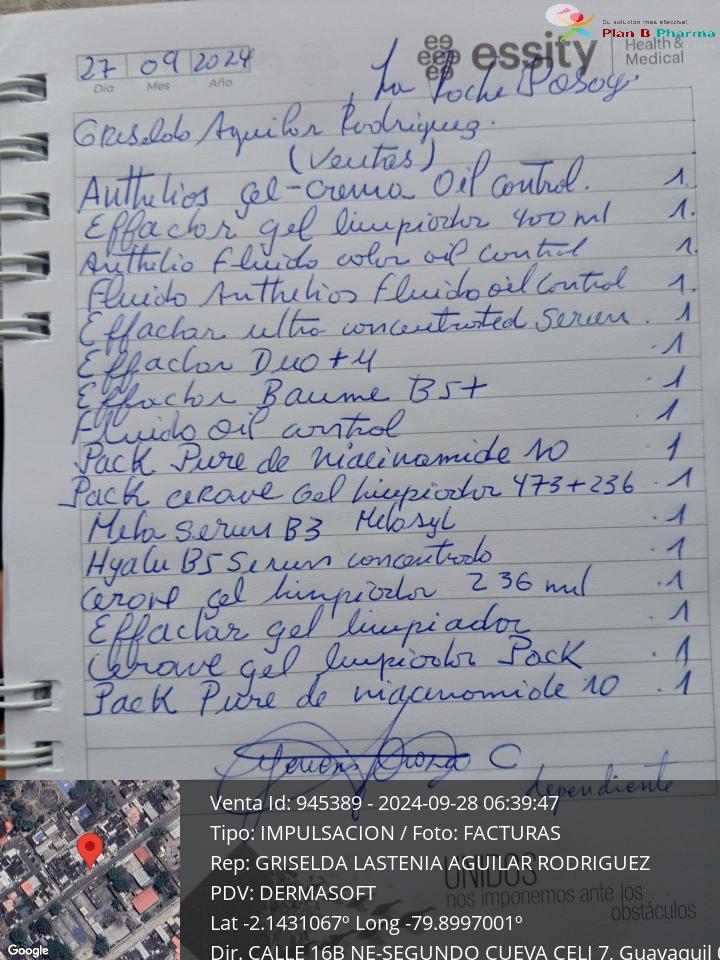 Su solucion mas efectiva!
Plan B Pharma
27 09 2024
Día Mes Año
essity
Health &
Medical
La Roche Posay.
Griselda Aguilar Rodriguez.
(Ventas)
Anthelios gel-crema Oil control. 1.
Effaclar gel limpiador 400 ml 1.
Anthelio Fluido color oil control 1.
Fluido Anthelios Fluido oil control 1.
Effaclar ultra concentrated Serum. 1
Effaclar Duo+M .1
Effaclar Baume B5+ .1
Fluido Oil control 1
Pack Pure de niacinamide 10 1
Pack cerave Gel limpiador 473+236 .1
Mela Serum B3 Melasyl .1
Hyalu B5 Serum concentrado .1
Cerave gel limpiador 236 ml .1
Effaclar gel limpiador .1
Cerave gel limpiador Pack .1
Pack Pure de niacinamide 10 .1
C
dependiente
Venta Id: 945389 - 2024-09-28 06:39:47
Tipo: IMPULSACION / Foto: FACTURAS
Rep: GRISELDA LASTENIA AGUILAR RODRIGUEZ
UNIDOS
PDV: DERMASOFT
nos imponemos ante los
obstáculos
Lat -2.1431067º Long -79.8997001º
Dir. CALLE 16B NE-SEGUNDO CUEVA CELI 7, Guayaquil
Google